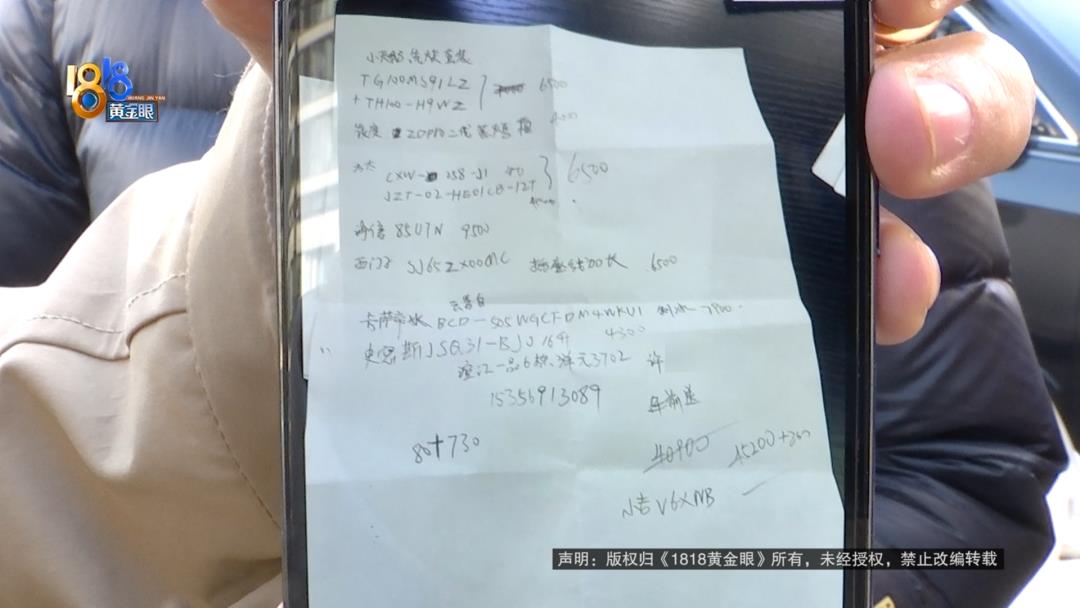 1818
HUANG JIN YAN
黄金眼
小天鹅洗烘套装
TG100MS91LZ
+TH100-H9WZ
6500
二代
方太 CXW- 258-J1
JZT-02-H201CB-12T
6500
海信 85U7N 9500
西门子 SJ65ZX00MC 6500
云墨白
卡萨帝冰 BCD-505WGCFDM4WKU1 制冰
史密斯JSQ31-BJ0 16升 4300
滨江一品6栋 单元3702 许
15356913089
年前送
80+730
40900 45200+300
小吉V6XNB
声明:版权归《1818黄金眼》所有,未经授权,禁止改编转载